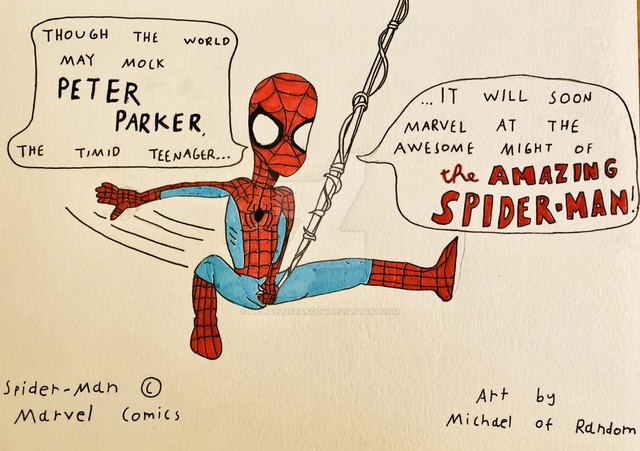 THOUGH THE WORLD
MAY MOCK
PETER
PARKER,
THE TIMID TEENAGER...
...IT WILL SOON
MARVEL AT THE
AWESOME MIGHT OF
the AMAZING
SPIDER-MAN!
Spider-Man ©
Marvel Comics
Art by
Michael of Random